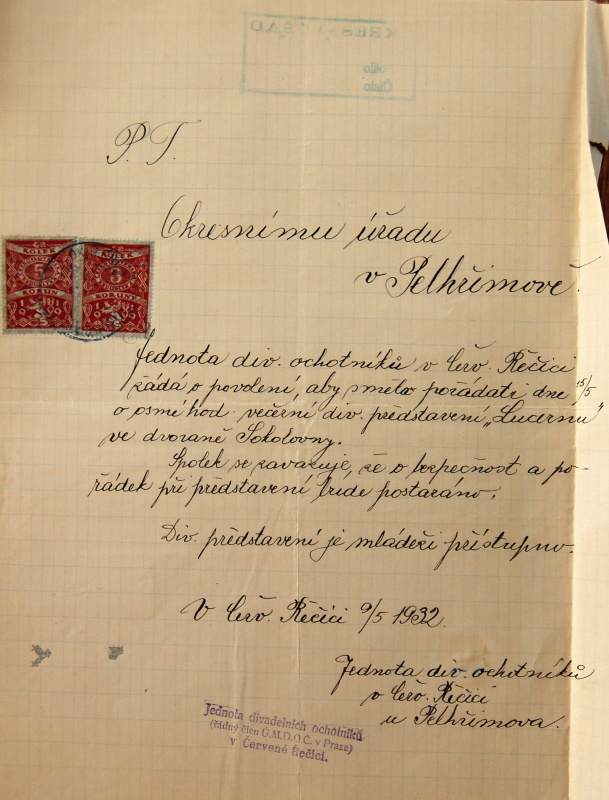 P. T.
Okresnímu úřadu
v Pelhřimově.
KOLEK
5
KORUN
KOLEK
3
KORUNY
Jednota div. ochotníků v Červ. Řečici
žádá o povolení, aby směla pořádati dne 15/5
o osmé hod. večerní div. představení „Lucerna"
ve dvoraně Sokolovny.
Spolek se zavazuje, že o bezpečnost a po-
řádek při představení bude postaráno.
Div. představení je mládeži přístupno.
V Červ. Řečici 9/5 1932.
Jednota div. ochotníků
v Červ. Řečici
u Pelhřimova.
Jednota divadelních ochotníků
(řádný člen Ú.M.D.O.Č. v Praze)
v Červené Řečici.